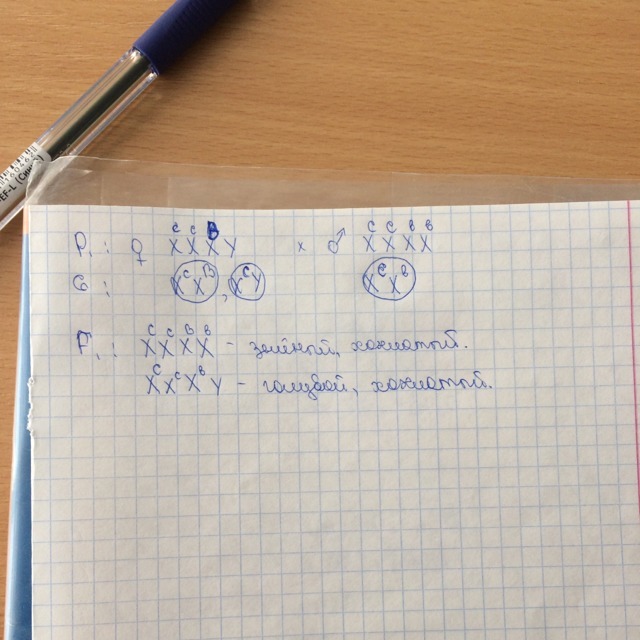 P₁: ♀ XᶜXᶜXᴮY × ♂ XᶜXᶜXᵇXᵇ
G: XᶜXᴮ, XᶜY XᶜXᵇ
F₁: XᶜXᶜXᴮXᵇ – зелёный, хохлатый.
XᶜXᶜXᵇY – голубой, хохлатый.